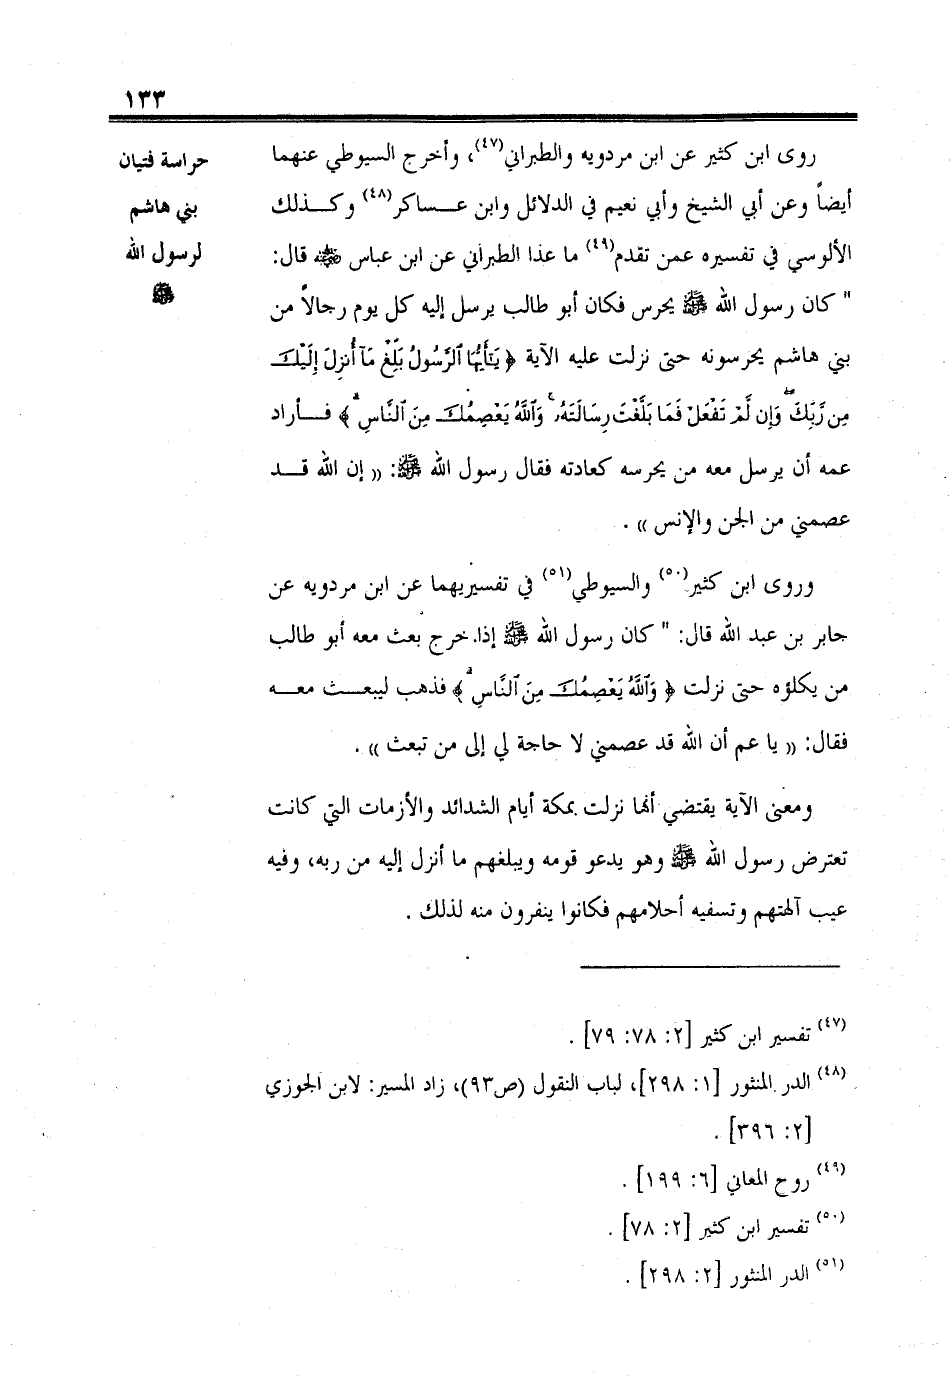 ١٣٣
حراسة فتيان
بني هاشم
لرسول الله
ﷺ
روى ابن كثير عن ابن مردويه والطبراني(٤٧)، وأخرج السيوطي عنهما
أيضاً وعن أبي الشيخ وأبي نعيم في الدلائل وابن عـساكر(٤٨) وكـذلك
الألوسي في تفسيره عمن تقدم(٤٩) ما عذا الطبراني عن ابن عباس ﷺ قال:
" كان رسول الله ﷺ يحرس فكان أبو طالب يرسل إليه كل يوم رجالاً من
بني هاشم يحرسونه حتى نزلت عليه الآية ﴿ يَـٰٓأَيُّهَا ٱلرَّسُولُ بَلِّغْ مَآ أُنزِلَ إِلَيْكَ
مِن رَّبِّكَ ۖ وَإِن لَّمْ تَفْعَلْ فَمَا بَلَّغْتَ رِسَالَتَهُۥ ۚ وَٱللَّهُ يَعْصِمُكَ مِنَ ٱلنَّاسِ ۗ ﴾ فـأراد
عمه أن يرسل معه من يحرسه كعادته فقال رسول الله ﷺ: (( إن الله قـد
عصمني من الجن والإنس )) .
وروى ابن كثير(٥٠) والسيوطي(٥١) في تفسيريهما عن ابن مردويه عن
جابر بن عبد الله قال: " كان رسول الله ﷺ إذا خرج بعث معه أبو طالب
من يكلؤه حتى نزلت ﴿ وَٱللَّهُ يَعْصِمُكَ مِنَ ٱلنَّاسِ ۗ ﴾ فذهب ليبعـث معـه
فقال: (( يا عم أن الله قد عصمني لا حاجة لي إلى من تبعث )) .
ومعنى الآية يقتضي أنها نزلت بمكة أيام الشدائد والأزمات التي كانت
تعترض رسول الله ﷺ وهو يدعو قومه ويبلغهم ما أنزل إليه من ربه، وفيه
عيب آلهتهم وتسفيه أحلامهم فكانوا ينفرون منه لذلك .
(٤٧) تفسير ابن كثير [٢: ٧٨: ٧٩] .
(٤٨) الدر المنثور [١: ٢٩٨]، لباب النقول (ص٩٣)، زاد المسير: لابن الجوزي
[٢: ٣٩٦] .
(٤٩) روح المعاني [٦: ١٩٩] .
(٥٠) تفسير ابن كثير [٢: ٧٨] .
(٥١) الدر المنثور [٢: ٢٩٨] .